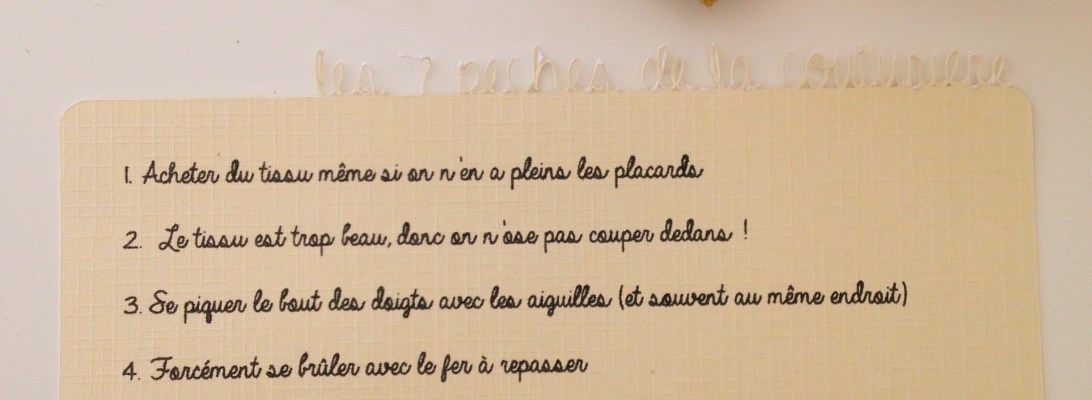 les 7 peches de la couturiere
1. Acheter du tissu même si on n'en a pleins les placards
2. Le tissu est trop beau, donc on n'ose pas couper dedans !
3. Se piquer le bout des doigts avec les aiguilles (et souvent au même endroit)
4. Forcément se brûler avec le fer à repasser